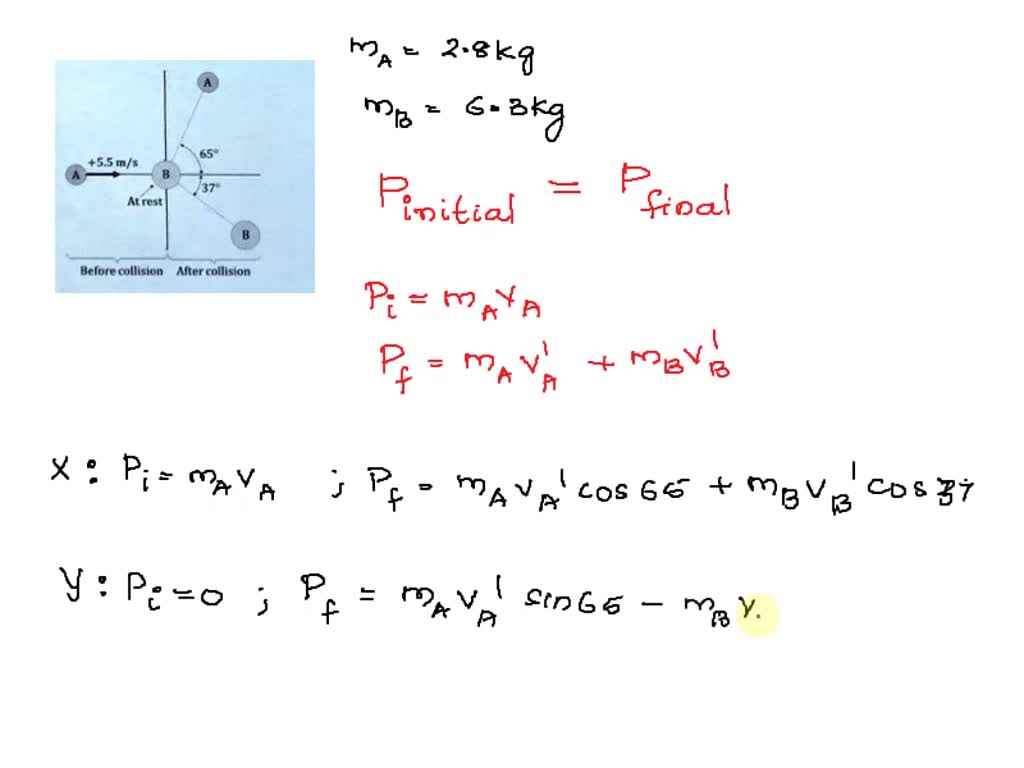 m_A = 2.8kg
m_B = 6.3kg
A
65°
+5.5 m/s
A
B
37°
At rest
B
Before collision After collision
P_initial = P_final
P_i = m_A v_A
P_f = m_A v_A' + m_B v_B'
X : P_i = m_A v_A ; P_f = m_A v_A' cos 65 + m_B v_B' cos 37
Y : P_i = 0 ; P_f = m_A v_A' sin 65 - m_B v